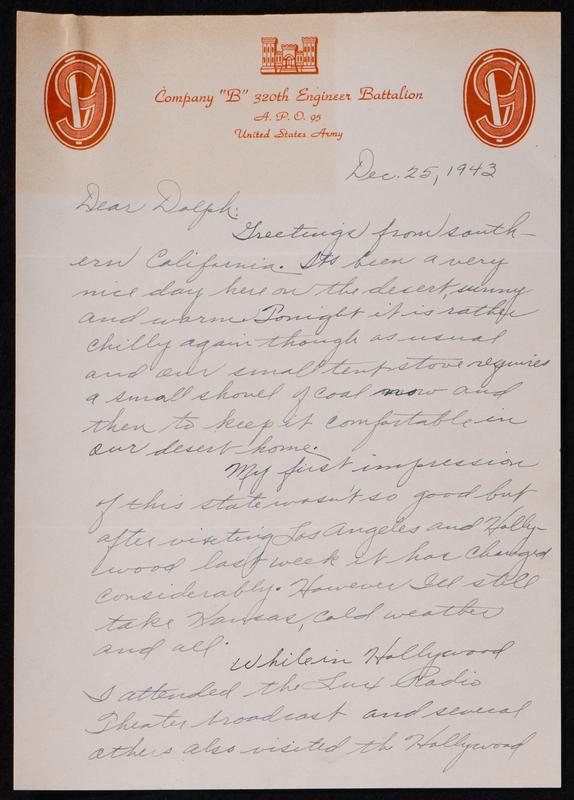 Company "B" 320th Engineer Battalion
A. P. O. 95
United States Army
Dec. 25, 1943
Dear Dolph:
Greetings from south-
ern California. Its been a very
nice day here on the desert, sunny
and warm. Tonight it is rather
chilly again though as usual
and our small tent stove requires
a small shovel of coal now and
then to keep it comfortable in
our desert home.
My first impression
of this state wasn't so good but
after visiting Los Angeles and Holly-
wood last week it has changed
considerably. However I'll still
take Kansas, cold weather
and all.
While in Hollywood
I attended the Lux Radio
Theater broadcast and several
others also visited the Hollywood